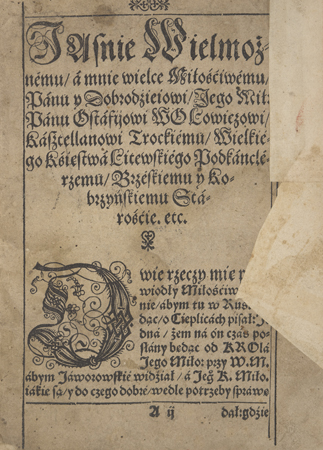 JAśnie Wielmoż-
nému/ á mnie wielce Miłośćiwému/
Pánu y Dobrodzieiowi/ Jego Mił:
Pánu Ostáfijowi WOŁowiczowi/
Kásztellanowi Trockiému/ Wielkié-
go Kśięstwá Litewskiégo Podkánclé-
rzemu/ Brzéskiemu y Ko-
brzyńskiemu Stá-
rośćie. etc.
Dwie rzeczy mię
wiodły Miłośćiw
nie/ábym tu w Rus
dąc/ o Cieplicách pisał:
dná/ żem ná ón czás po-
słány będąc od KROlá
Jego Miło: przy W. M.
ábym Jáworowskié widźiał/ á Jeg° K. Miło.
iákie są/ y do czego dobré/ wedle potrzeby spráwę
A ij
dał: gdźie